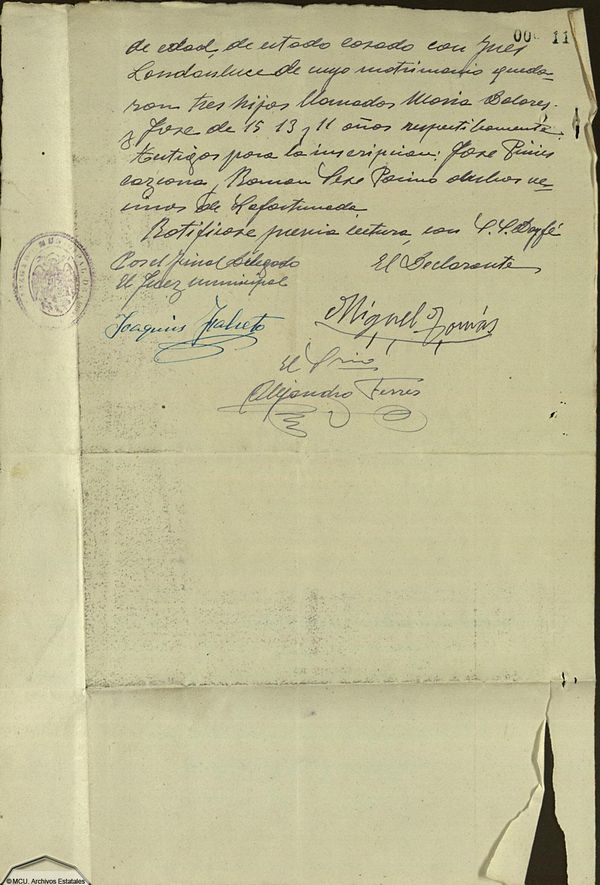 00 11
de edad, de estado casado con Ines
Landaluce de cuyo matrimonio queda-
ron tres hijos llamados Maria Dolores
y Jose de 15 13 y 11 años respectibamente.
Testigos para la inscripcion: Jose
y Roman Sese ambos ve-
cinos de Lafortunada
Ratificose previa lectura, con S.S. Doy fé
El Declarante
El Juez municipal
Joaquin
Miguel Tomás
El Srio
Alejandro Ferrer
© MCU. Archivos Estatales